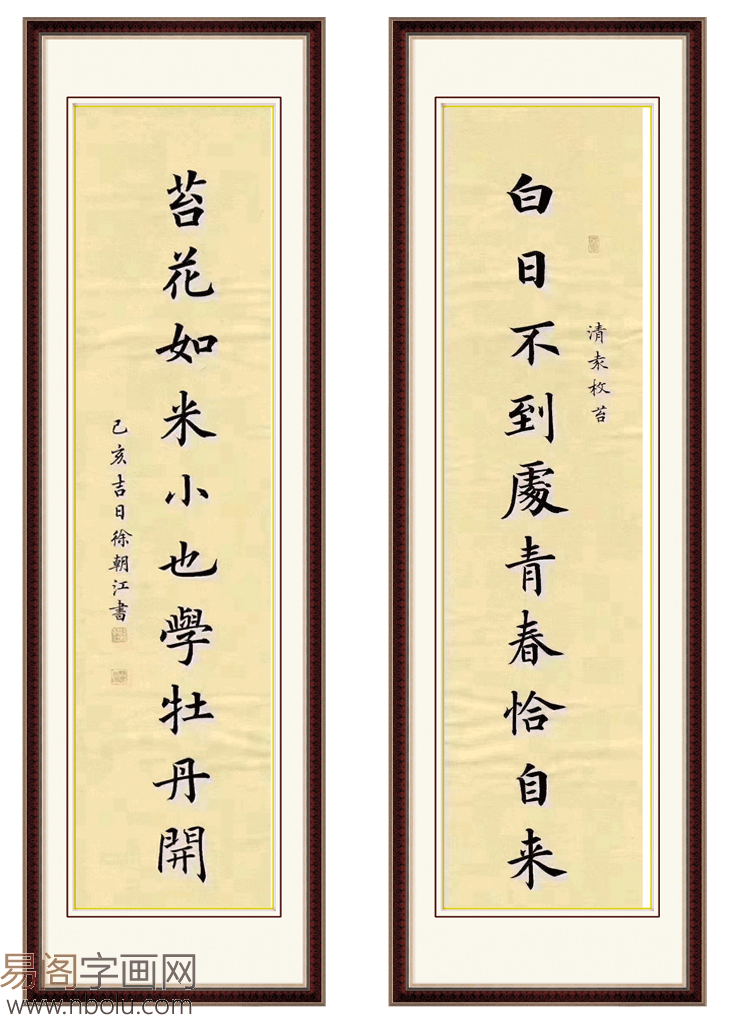 清袁枚苔
白日不到處青春恰自来
苔花如米小也學牡丹開
己亥吉日徐朝江書
易阁字画网
www.nbolu.com